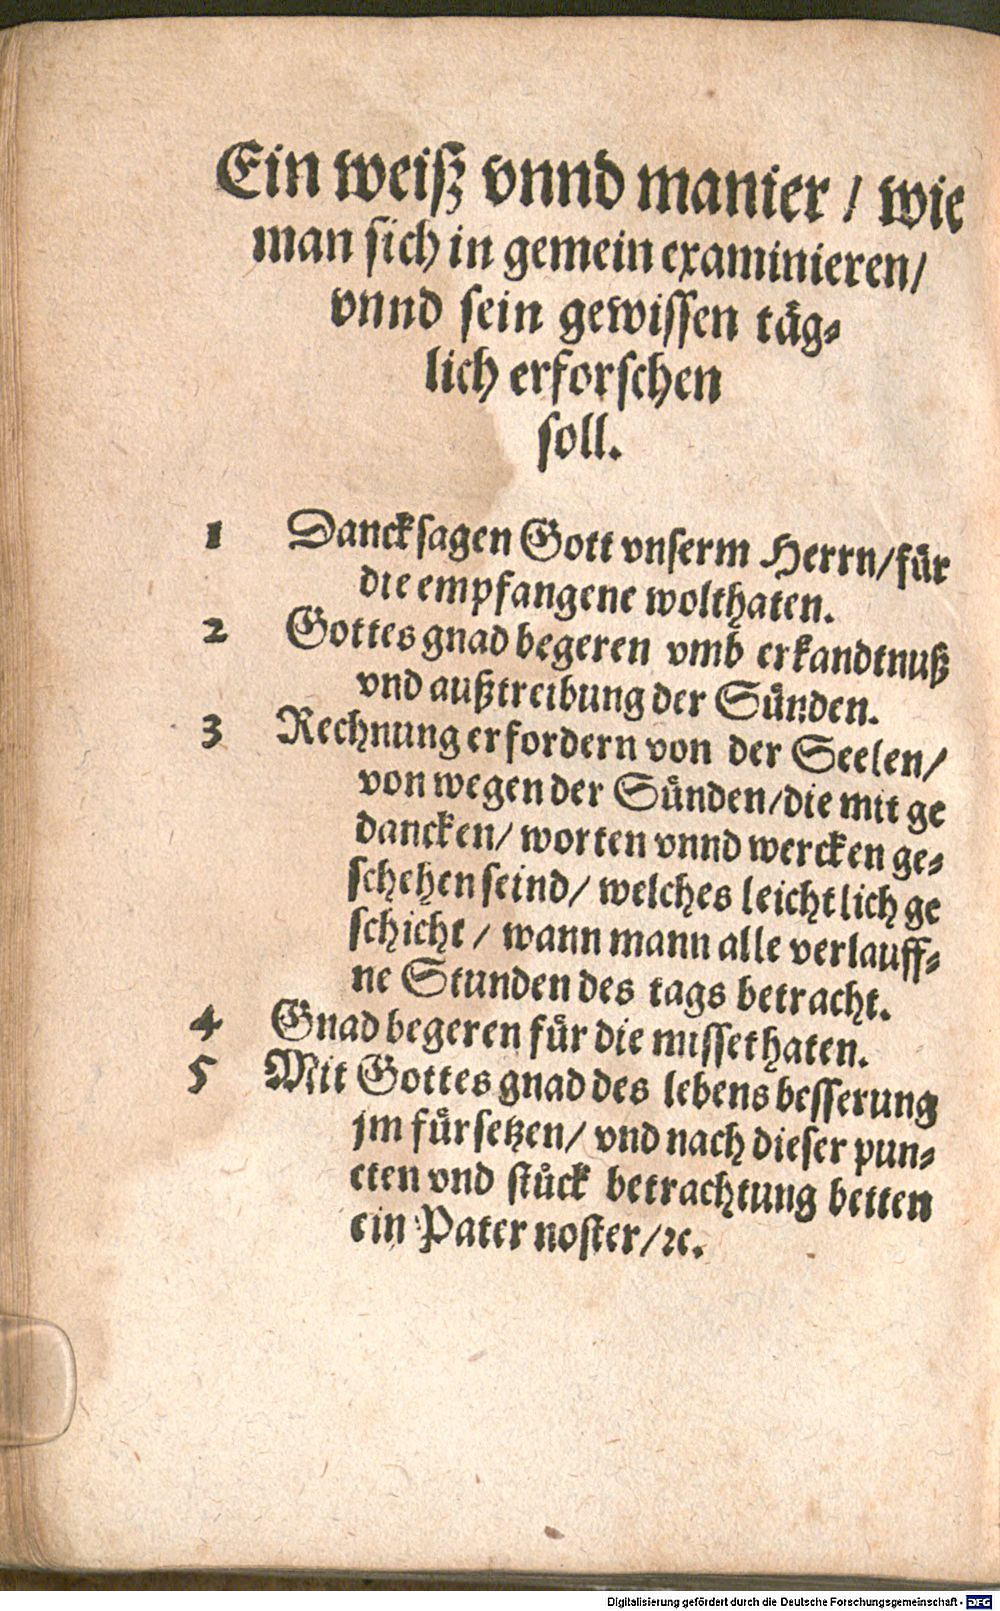 Ein weiß vnnd manier / wie
man sich in gemein examinieren/
vnnd sein gewissen täg-
lich erforschen
soll.
1 Dancksagen Gott vnserm Herrn/für
die empfangene wolthaten.
2 Gottes gnad begeren vmb erkandtnuß
vnd außtreibung der Sünden.
3 Rechnung erfordern von der Seelen/
von wegen der Sünden/die mit ge
dancken/ worten vnnd wercken ge-
schehen seind/ welches leichtlich ge
schicht / wann mann alle verlauff-
ne Stunden des tags betracht.
4 Gnad begeren für die missethaten.
5 Mit Gottes gnad des lebens besserung
jm fürsetzen/ vnd nach dieser pun-
cten vnd stück betrachtung betten
ein Pater noster/ꝛc.
Digitalisierung gefördert durch die Deutsche Forschungsgemeinschaft - DFG